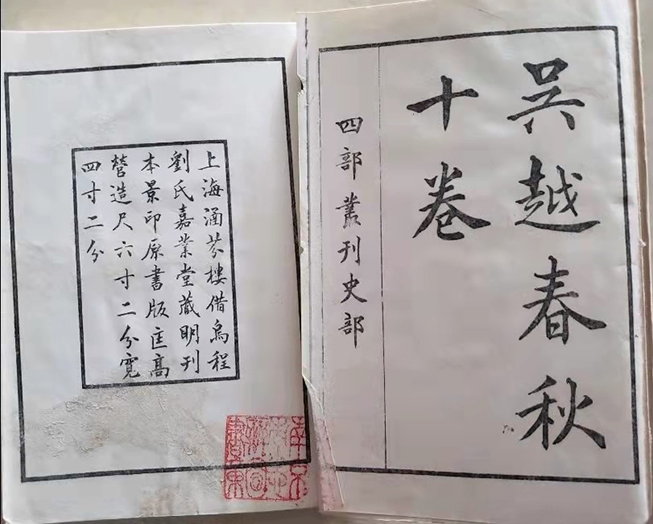 吴越春秋
十卷
四部叢刊史部
上海涵芬樓借烏程
劉氏嘉業堂藏明刊
本景印原書版匡高
營造尺六寸二分寬
四寸二分